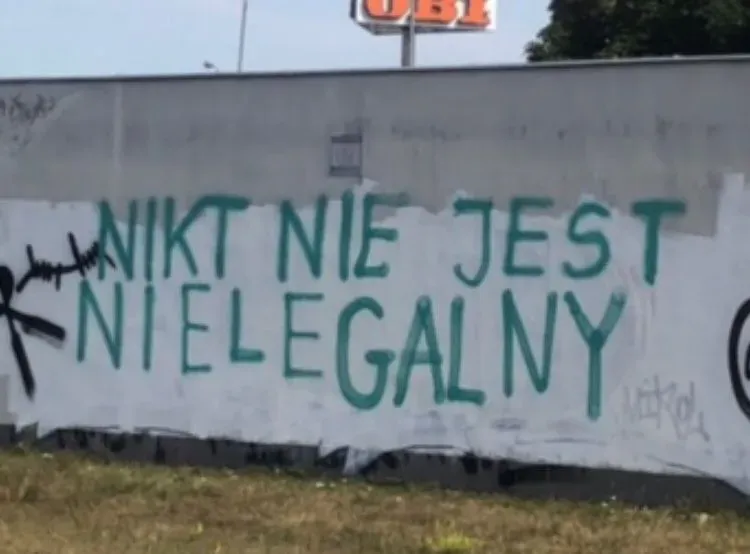 OBI
NIKT NIE JEST
NIELEGALNY